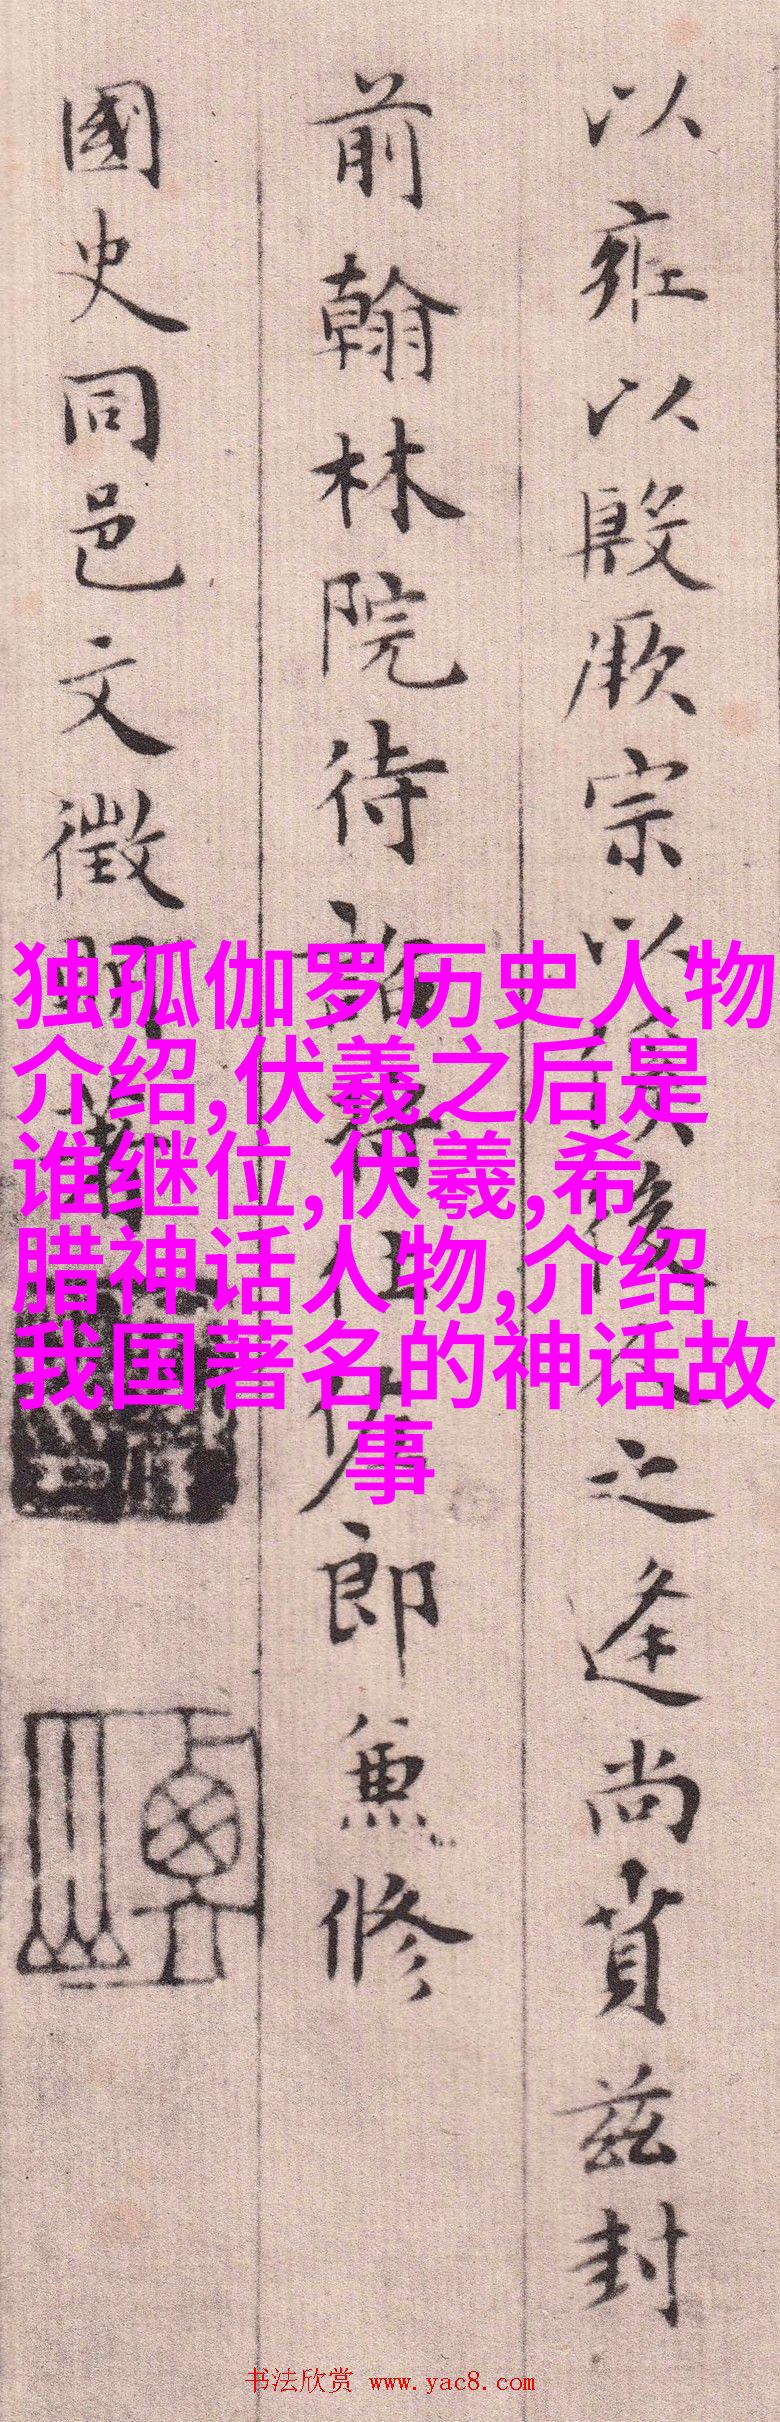 以雍以殷厥宗以後之逢尚賁兹封
前翰林院待詔將仕佐郎兼修
國史同邑文徵明書
独孤伽罗历史人物
介绍,伏羲之后是
谁继位,伏羲,希
腊神话人物,介绍
我国著名的神话故
事
书法欣赏 www.yac8.com